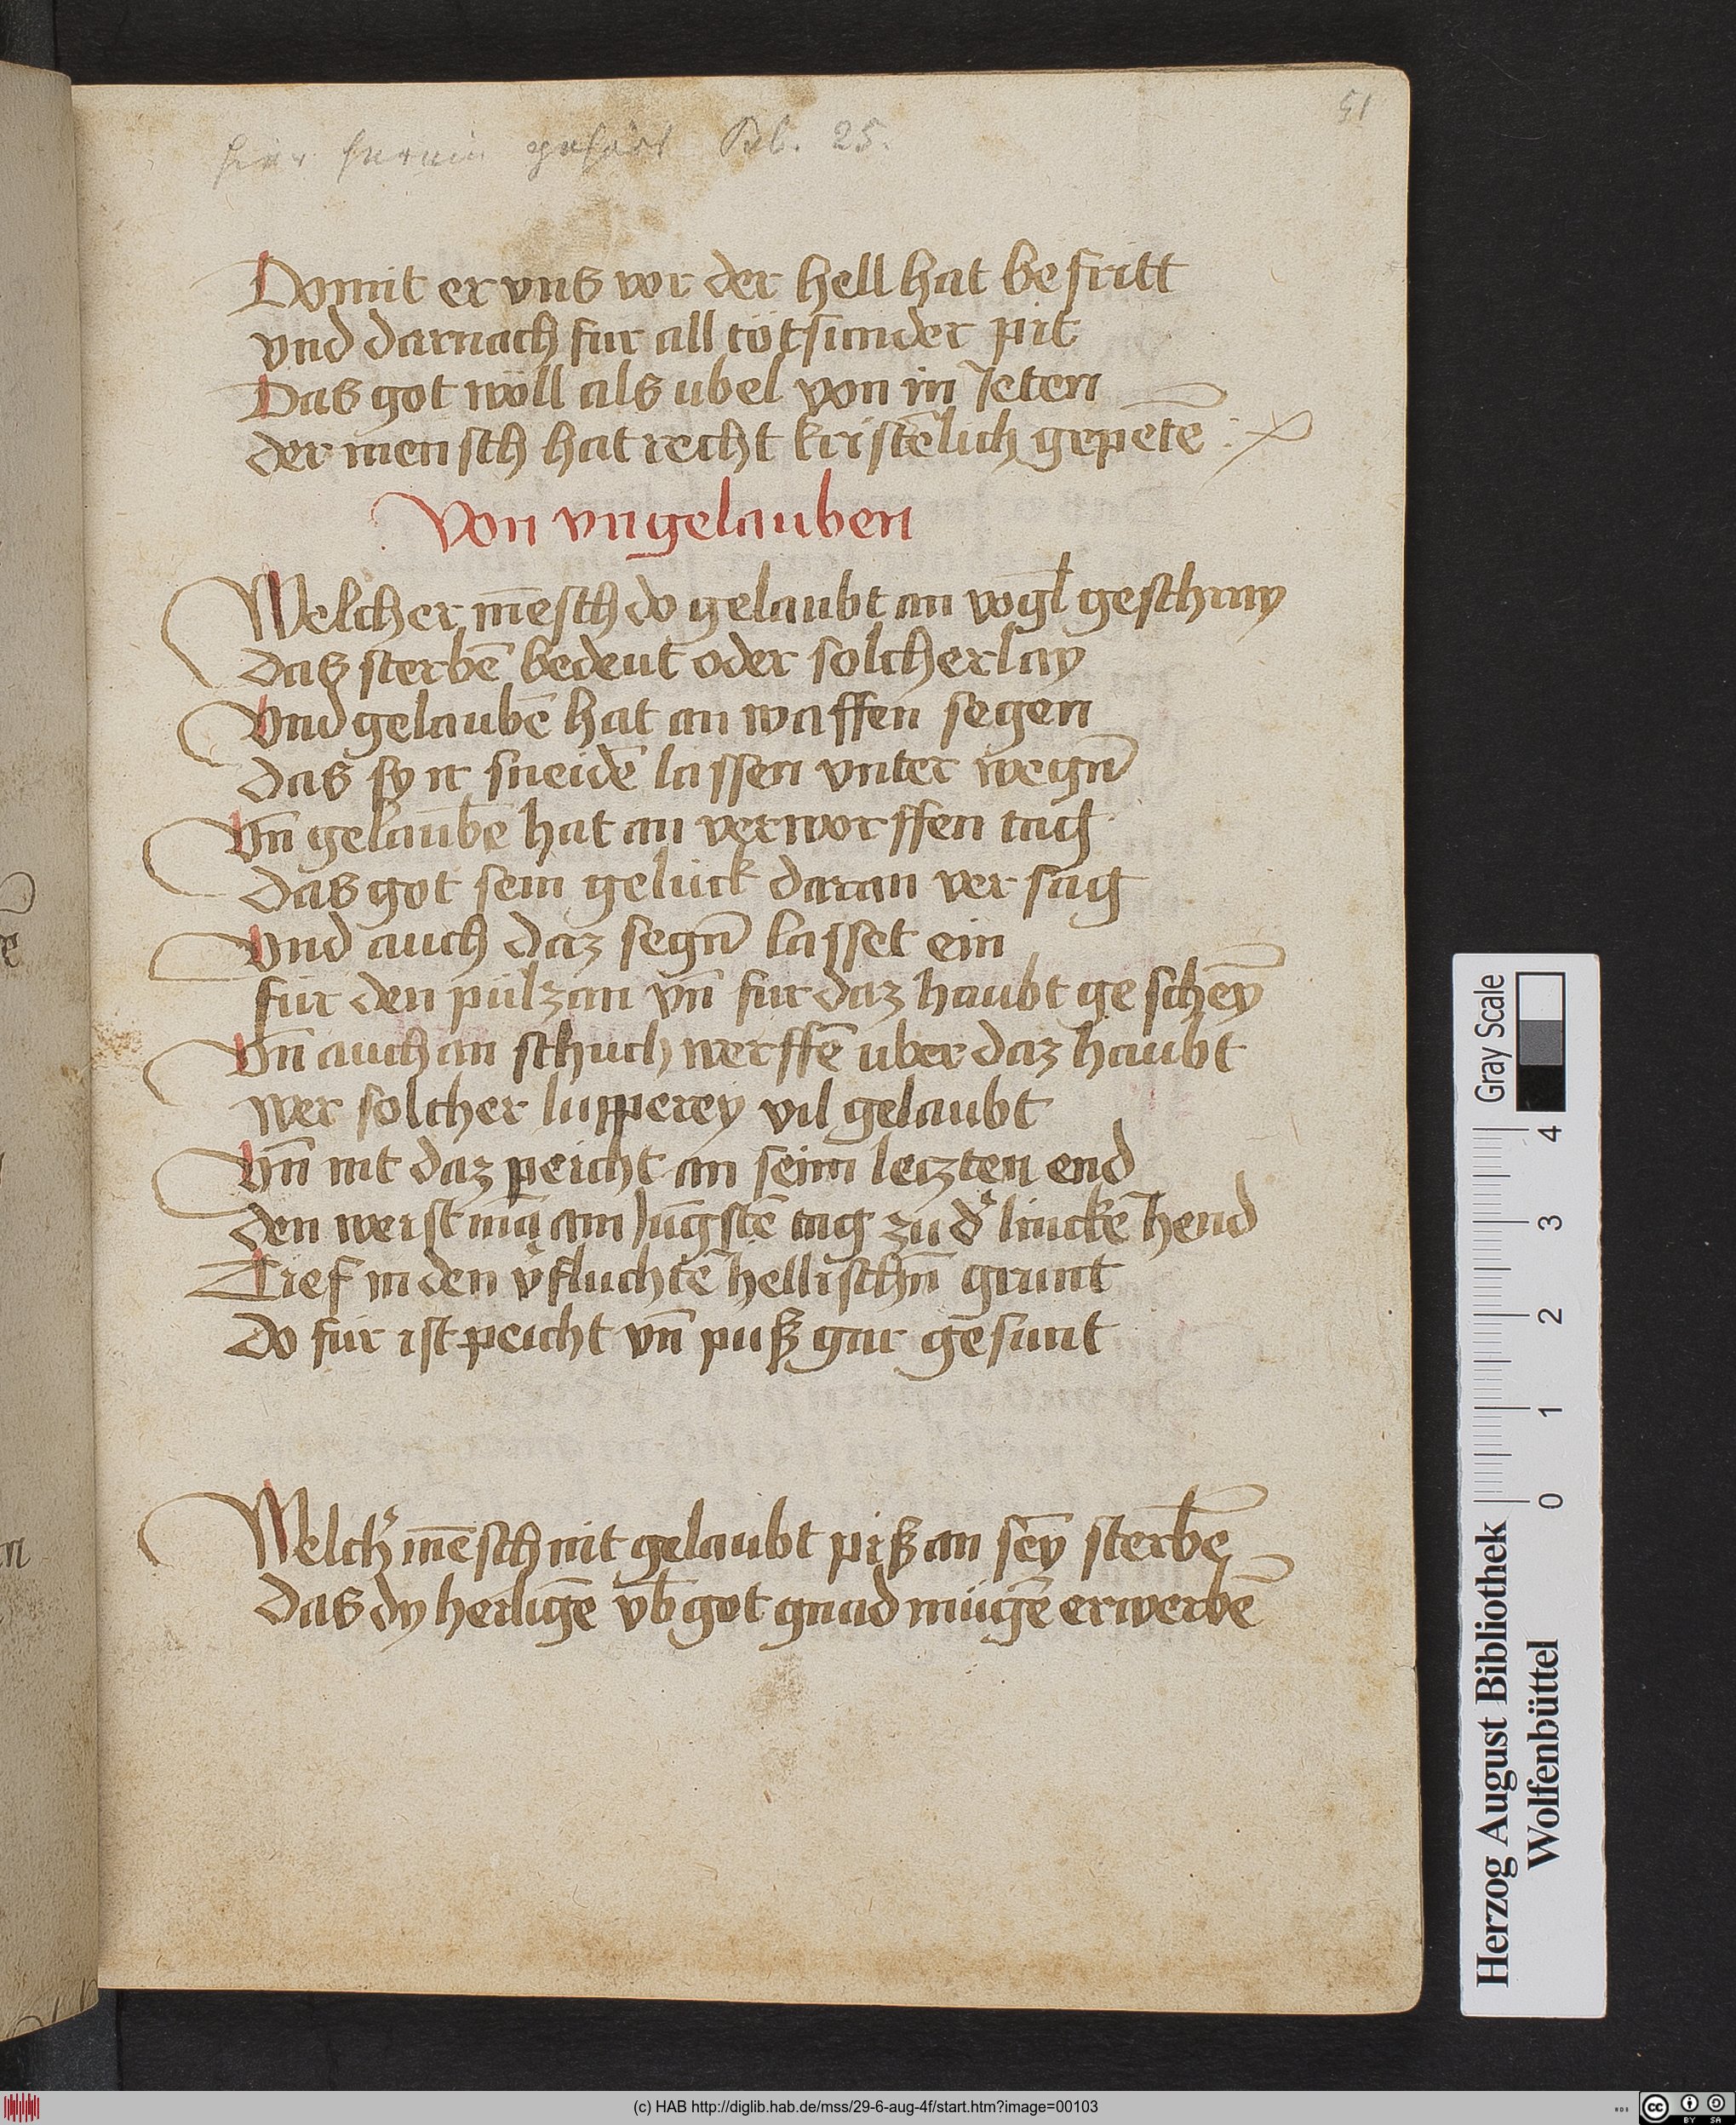 51
hier herein gehört Bl. 25.
Domit er vns vor der hell hat befritt
vnd darnach fur all tötsunder pit
Das got wöll als ubel von in Jeten
der mensch hat recht kristēlich gepetē
Von vngelauben
Welcher mēsch do gelaubt an vogl̄ geschray
das sterbē bedeut oder solcherlay
Vnd gelaubē hat an waffen segen
das sy it sneidē lassen vnter wegn̄
Vn̄ gelaubē hat an verworffen tag
das got sein gelück daran versag
Vnd auch daz segn̄ lasset ein
für den pülzan vn̄ fur daz haubt gescheȳ
Vn̄ auch an schuch werffē uber daz haubt
wer solcher lupperey vil gelaubt
Vn̄ nit daz peicht an seim leczten end
den weist mā am Jūgstē tag zu d' linckē hend
Tief in den v'fluchtē hellischn̄ grunt
Do für ist peicht vn̄ puß gar gesunt
Welch' mēsch nit gelaubt piß an seȳ sterbē
das dy heiligē vb̄ got gnad mügē erwerbē
Gray Scale
0 1 2 3 4
Herzog August Bibliothek
Wolfenbüttel
(c) HAB http://diglib.hab.de/mss/29-6-aug-4f/start.htm?image=00103
BY SA